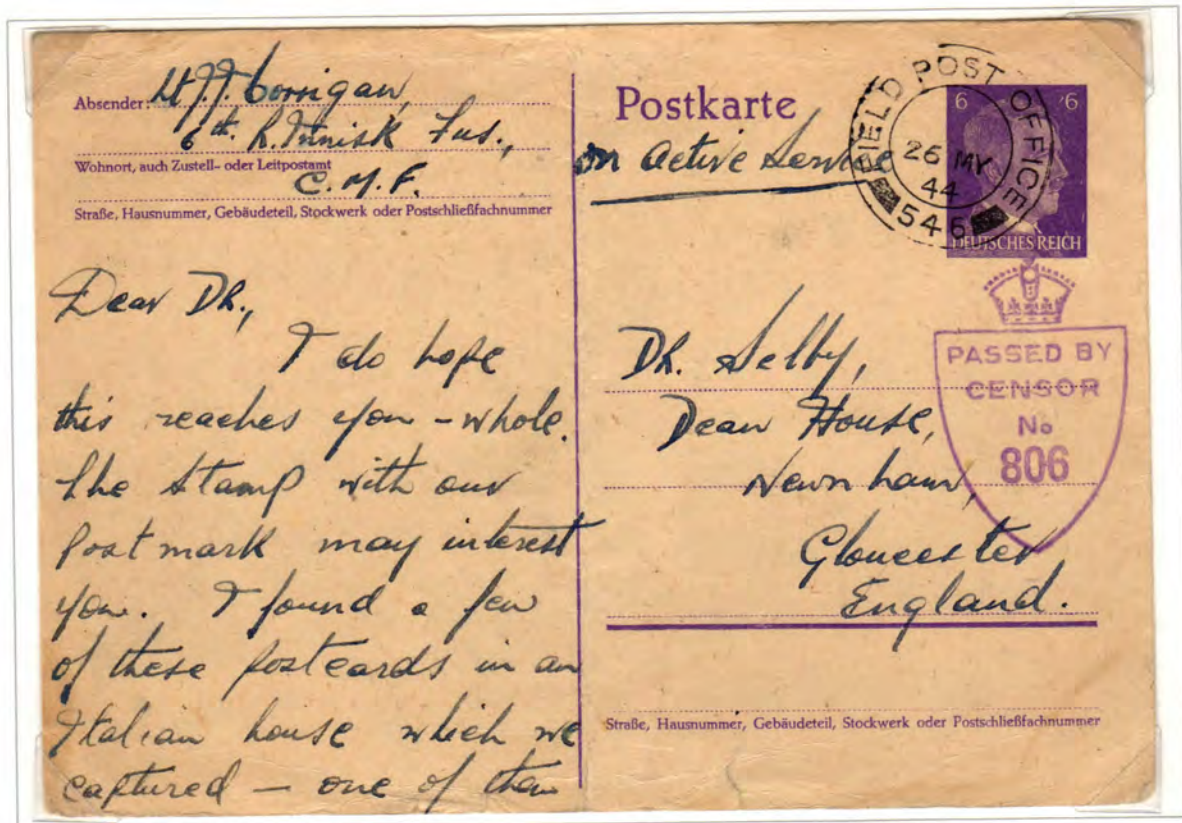 Absender: Lt J.J. Corrigan,
6th R. Innisk Fus.,
Wohnort, auch Zustell- oder Leitpostamt
C.M.F.
Straße, Hausnummer, Gebäudeteil, Stockwerk oder Postschließfachnummer
Dear DR.,
I do hope
this reaches you - whole.
The stamp with our
postmark may interest
you. I found a few
of these postcards in an
Italian house which we
captured - one of them
Postkarte
on active service
FIELD POST OFFICE
26 MY
44
546
6 6
DEUTSCHES REICH
PASSED BY
CENSOR
No
806
DR. Selby,
Dean House,
Newnham,
Gloucester
England.
Straße, Hausnummer, Gebäudeteil, Stockwerk oder Postschließfachnummer